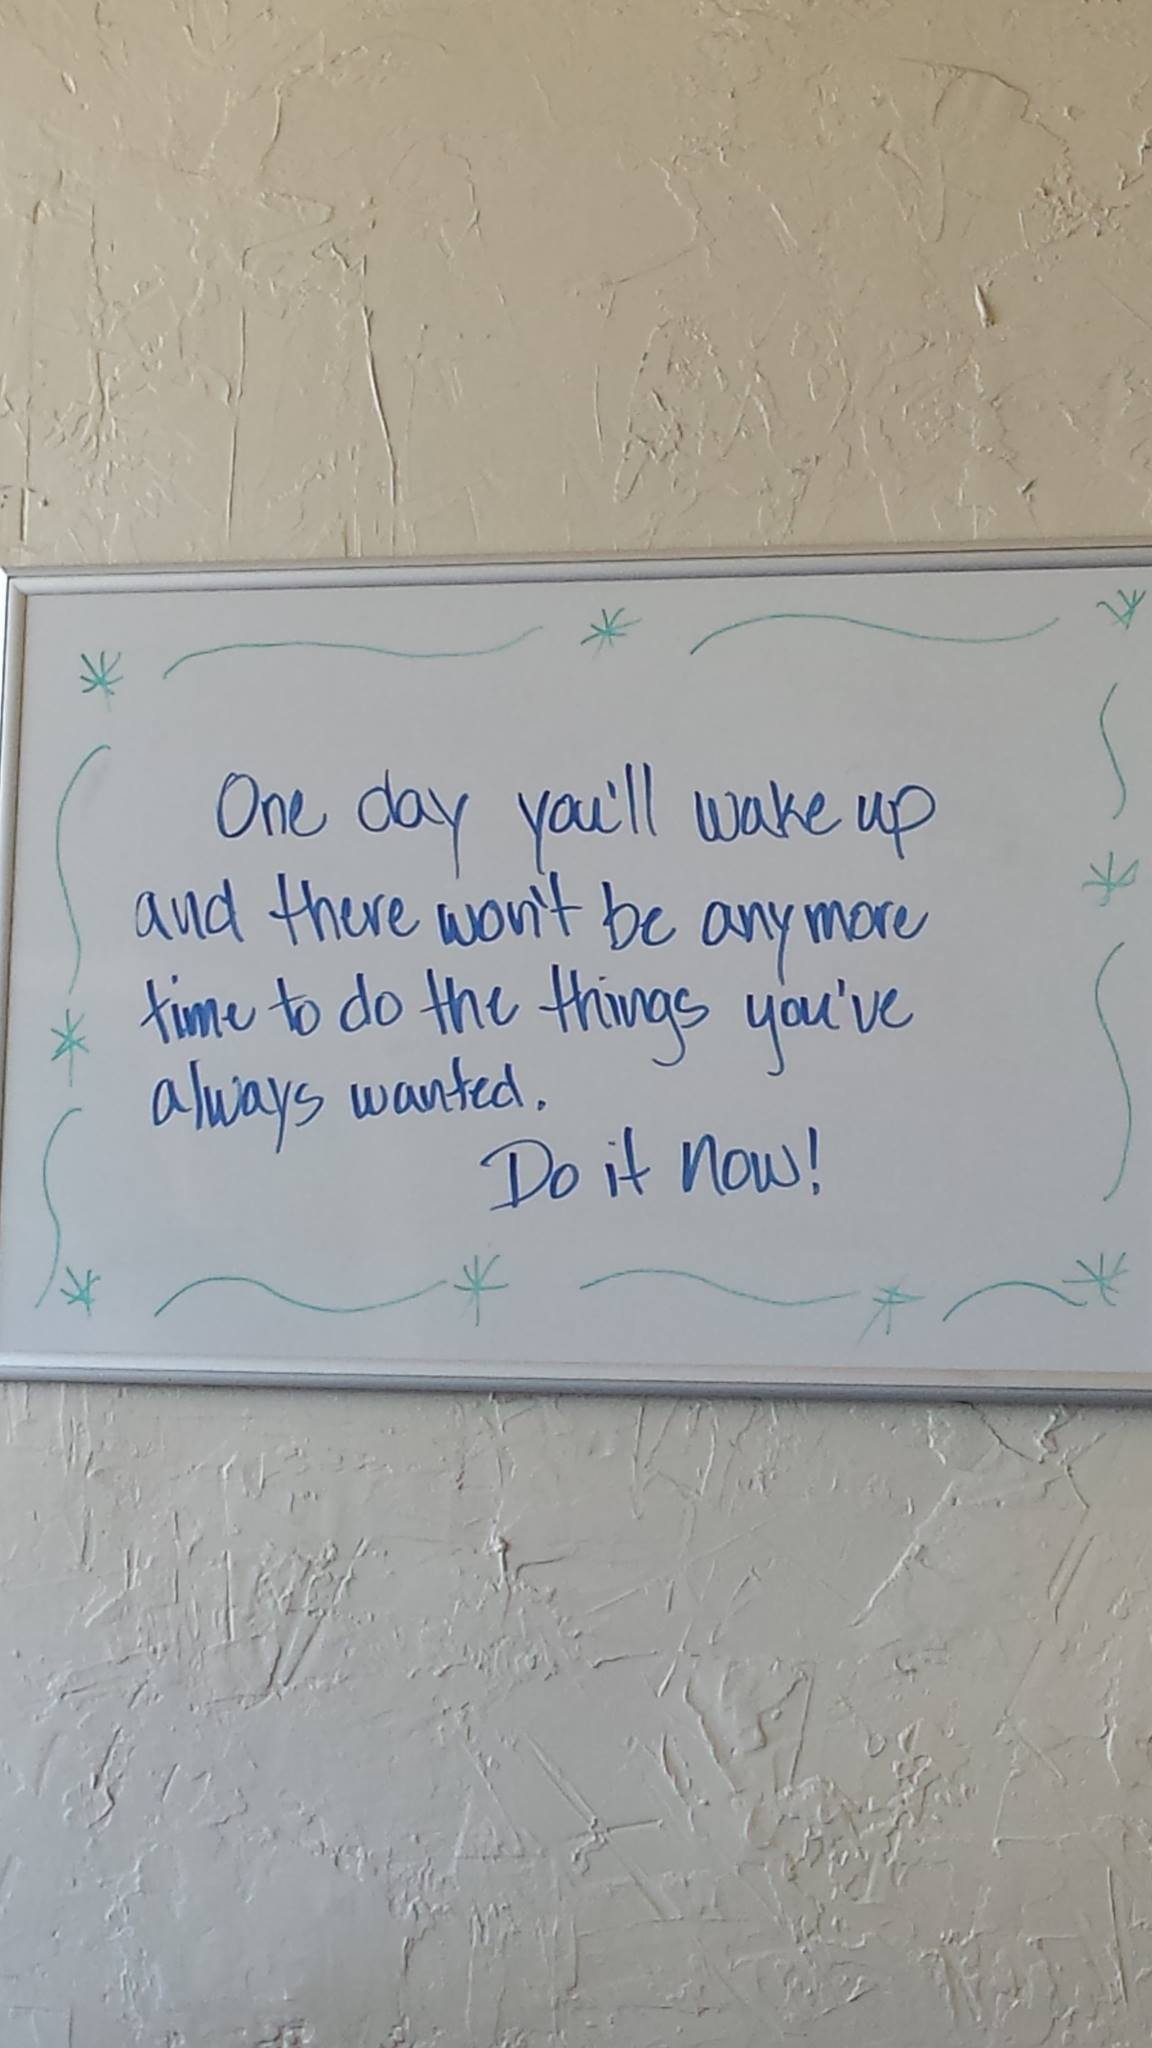 One day you'll wake up
and there won't be anymore
time to do the things you've
always wanted.
Do it now!